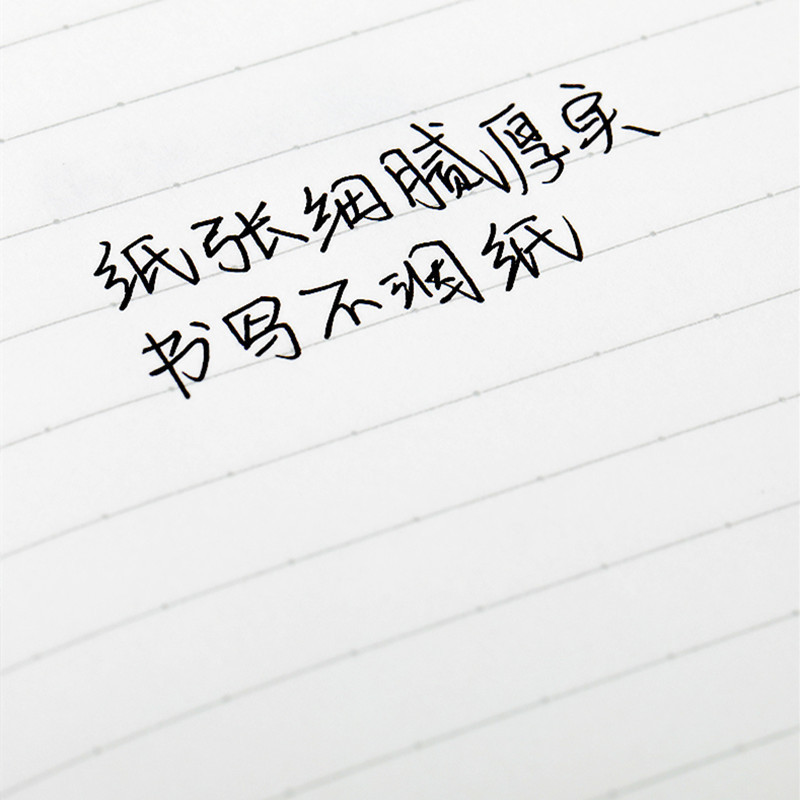 纸张细腻厚实
书写不洇纸